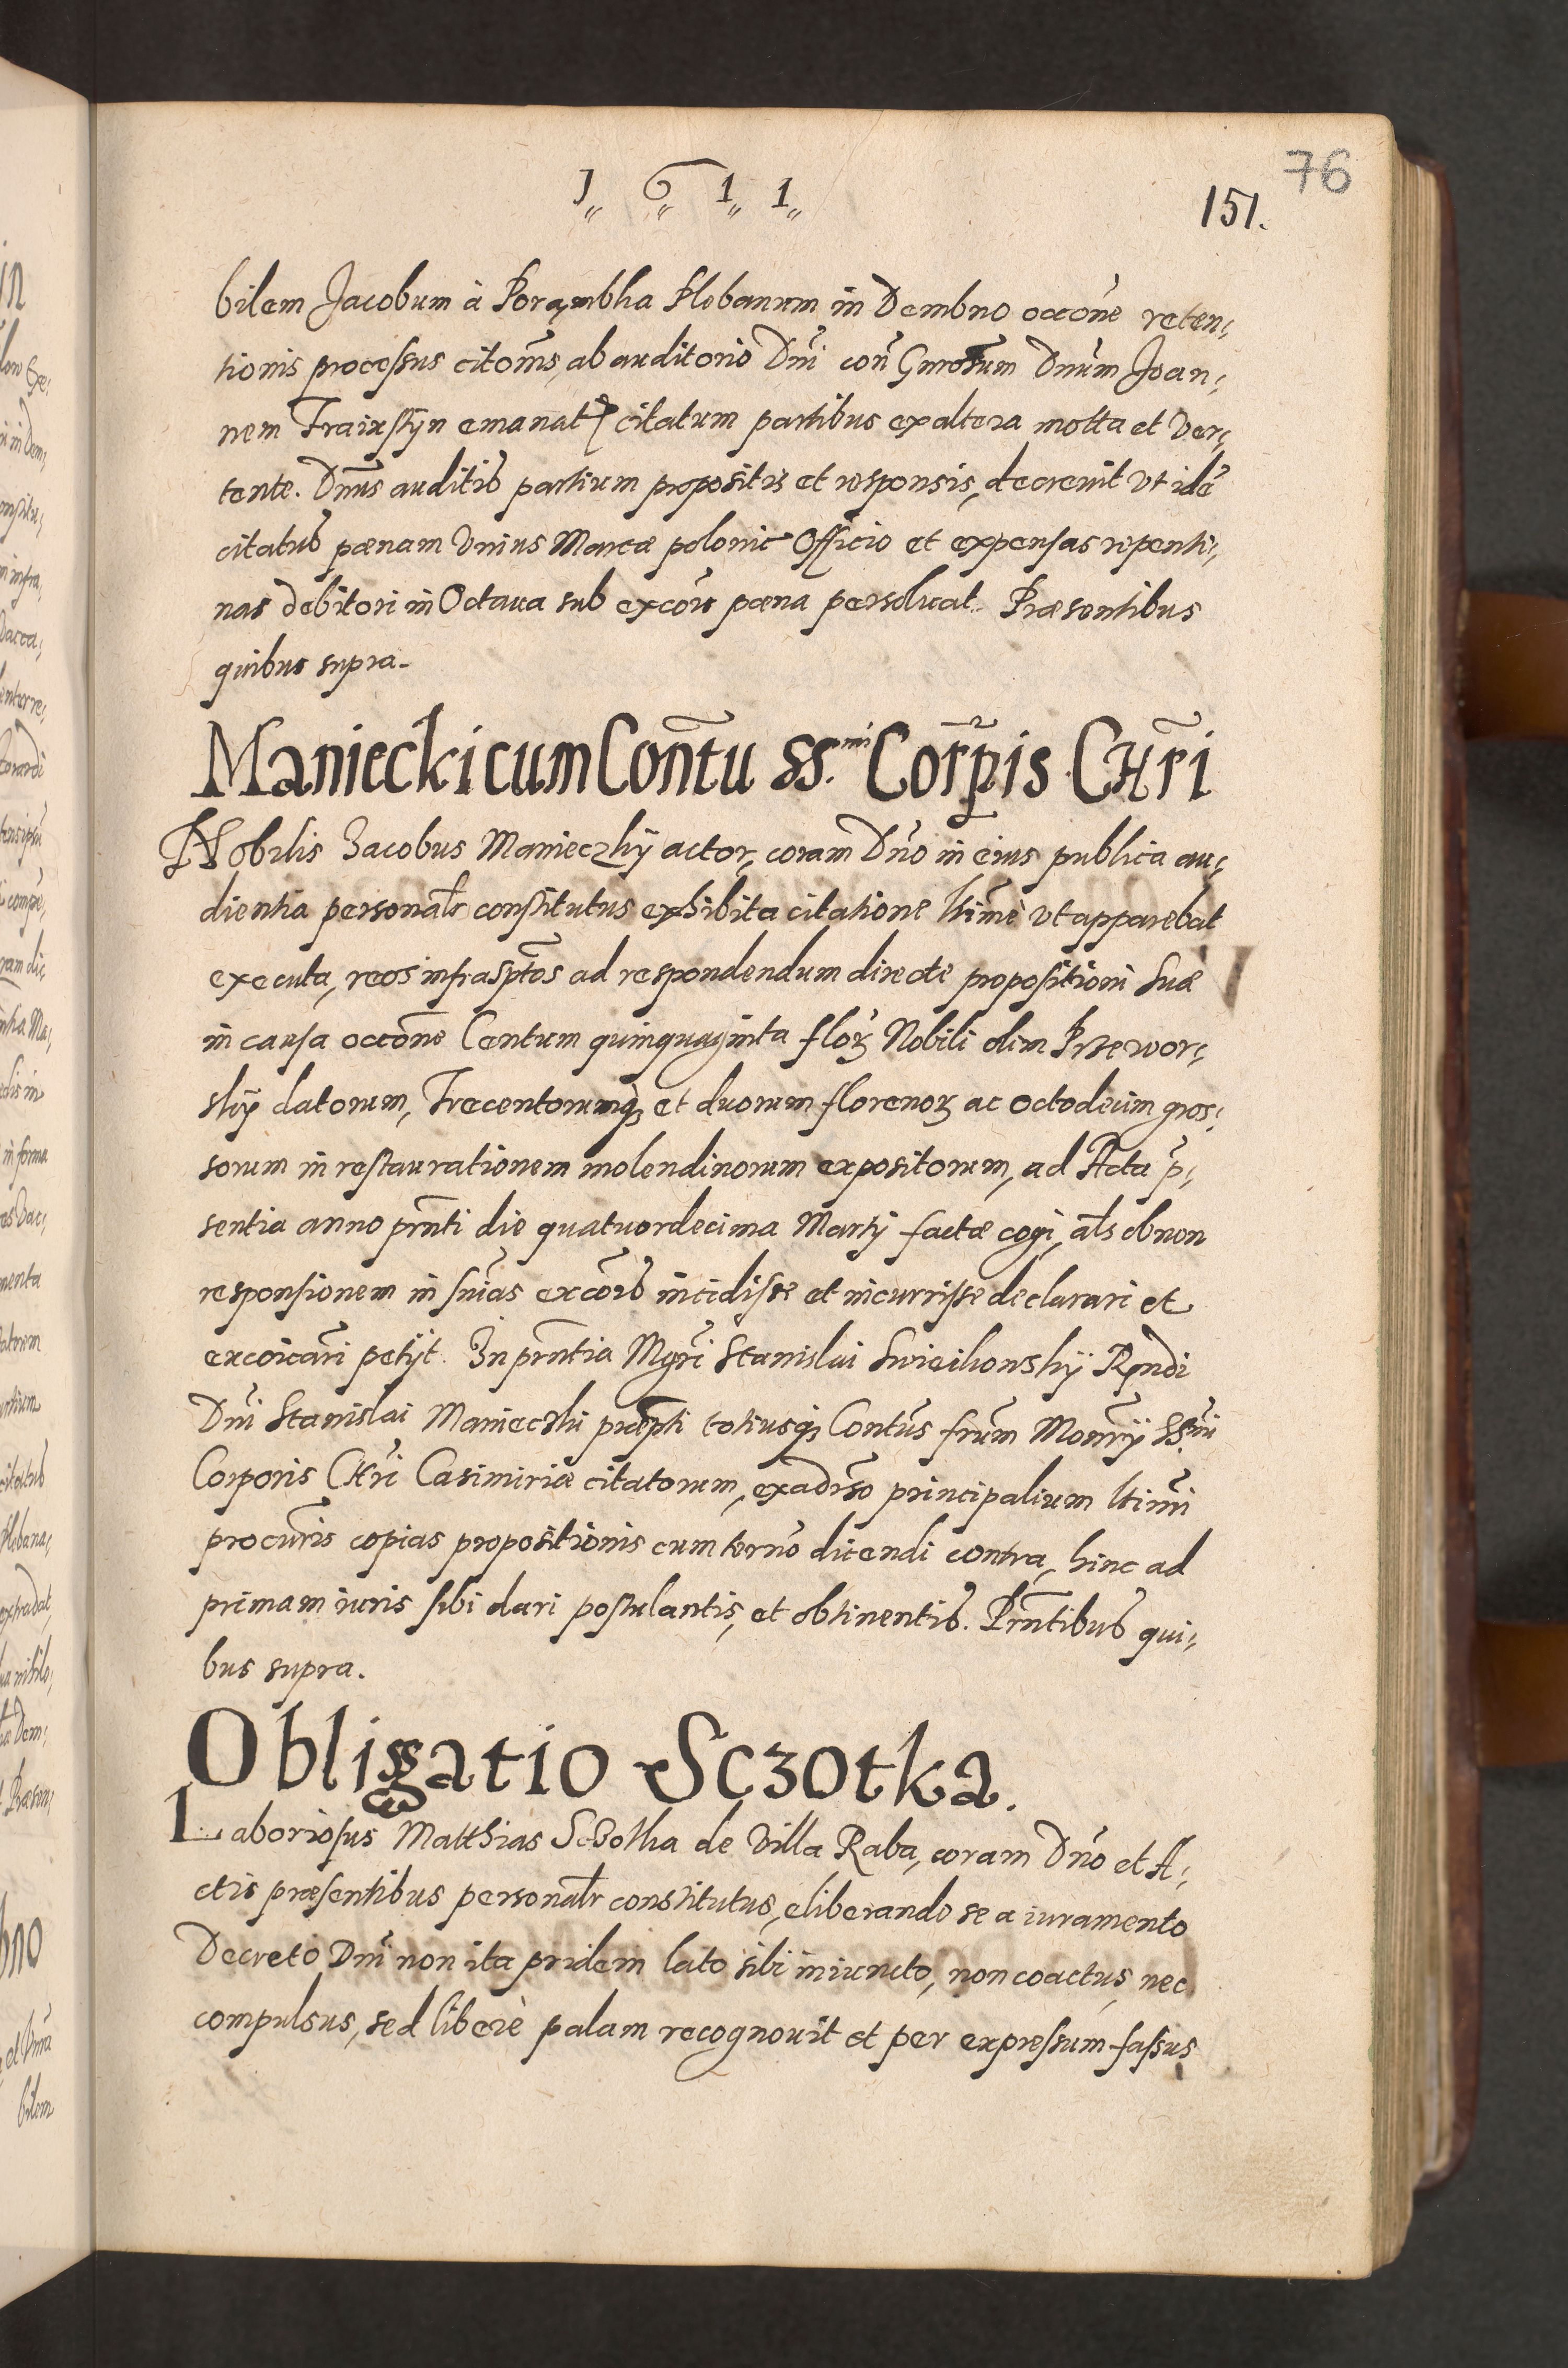 1 6 1 1
151.
76
bilem Jacobum à Porąmbka Plebanum in Dembno occõne reten,
tionis processus citõnis, ab auditorio Dñi coñ Gñrosum Dnum Joan,
nem Traixstyn emanat citatum partibus ex altera motta et ver,
tente. Dnus auditis partium propositis et responsis, decrevit vt idē
citatus pœnam vnius Marcæ polonic Officio et expensas repenti,
nas debitori in Octaua sub excõis pœna persoluat. Præsentibus
quibus supra.
Maniecki cum Conñtu SS.mi Corꝑis CHri
Nobilis Jacobus Manieczky actor, coram Dño in eius publica au,
dientia personalr constitutus exhibita citatione ltime vt apparebat
executa, reos infrasptos ad respondendum directe propositioni suæ
in causa occõne Centum quinquaginta floꝝ Nobili olim Przewor,
sky datorum, Trecentorumq̃ et duorum florenoꝝ ac octodecim gros,
sorum in restaurationem molendinorum expositorum, ad Acta p̃,
sentia anno prnti die quatuordecima Martij factæ cogi, als ob non
responsionem in snias excõis incidisse et incurrisse declarari et
excoicari petijt. In prntia Mgri Stanislai Swiecihowsky Rndi
Dñi Stanislai Manieczki præpti totiusq̃ Contus frum Monrij SS.mi
Corporis CHri Casimiriæ citatorum, ex adrso principalium ltimi
procuris copias propositionis cum terno dicendi contra, hinc ad
primam iuris sibi dari postulantis, et obtinentis. Prntibus qui,
bus supra.
Obligatio Sczotka.
Laboriosus Matthias Sczotka de Villa Raba, coram Dño et A,
ctis præsentibus personalr constitutus, eliberando se a iuramento
Decreto Dñi non ita pridem lato sibi iniuncto, non coactus, nec
compulsus, sed liberè palam recognouit et per expressum fassus